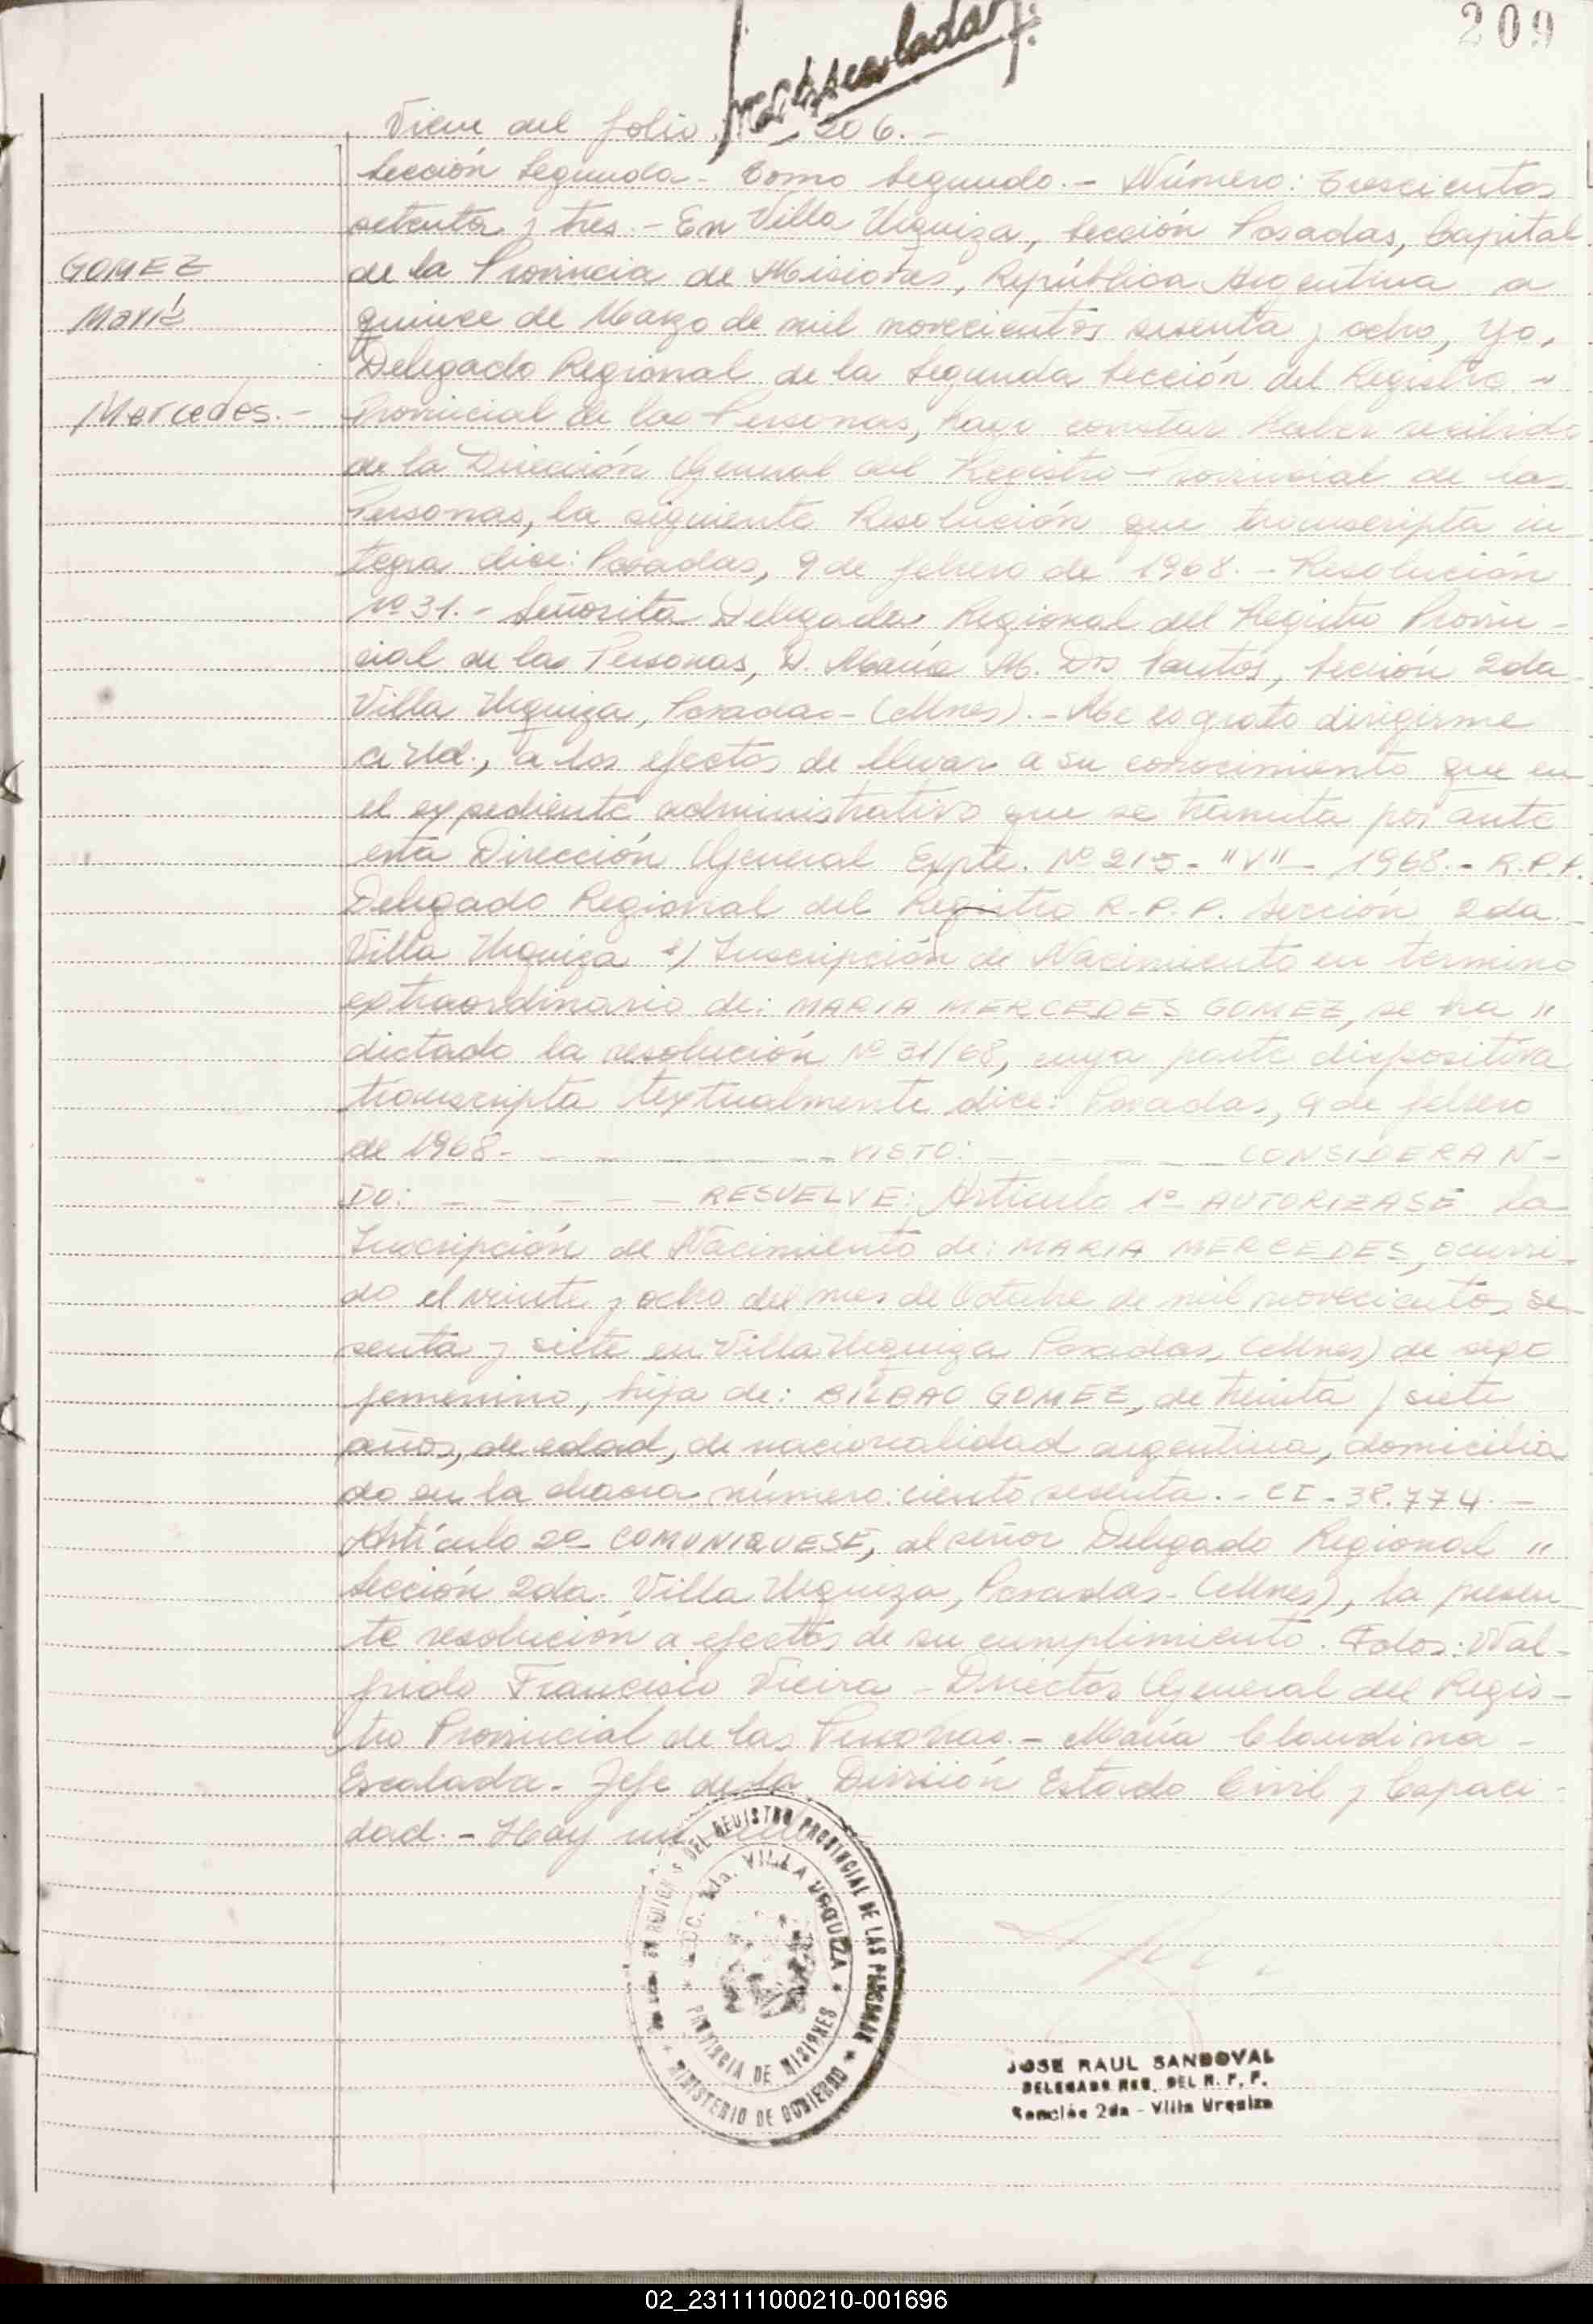 209
Viene del folio 206.-
Sección Segunda - Tomo Segundo.- Número: Trescientos
setenta y tres.- En Villa Urquiza, Sección Posadas, Capital
GOMEZ
de la Provincia de Misiones, República Argentina a
María
quince de Marzo de mil novecientos sesenta y ocho, yo,
Delegado Regional de la Segunda Sección del Registro -
Mercedes.-
Provincial de las Personas, hago constar haber recibido
de la Dirección General del Registro Provincial de las
Personas, la siguiente Resolución que transcripta in-
tegra dice: Posadas, 9 de febrero de 1968.- Resolución
Nº 31.- Señorita Delegada Regional del Registro Provin-
cial de las Personas, D. María M. Dos Santos, Sección 2da
Villa Urquiza, Posadas - (Mnes).- Me es grato dirigirme
a Ud., a los efectos de llevar a su conocimiento que en
el expediente administrativo que se tramita por ante
esta Dirección General Expte. Nº 215- "V" - 1968.- R.P.P.
Delegado Regional del Registro R.P.P. Sección 2da.
Villa Urquiza s/ Inscripción de Nacimiento en termino
extraordinario de: MARIA MERCEDES GOMEZ, se ha "
dictado la resolución Nº 31/68, cuya parte dispositiva
transcripta textualmente dice: Posadas, 9 de febrero
de 1968- - - - - - - - VISTO: - - - - - CONSIDERAN-
DO: - - - - - - RESUELVE: Artículo 1º AUTORIZASE la
Inscripción de Nacimiento de: MARIA MERCEDES, ocurri-
do el veinte y ocho del mes de Octubre de mil novecientos se-
senta y siete en Villa Urquiza Posadas, (Mnes) de sexo
femenino, hija de: BILBAO GOMEZ, de treinta y siete
años, de edad, de nacionalidad argentina, domicilia
do en la chacra número: ciento sesenta.- CI - 38.774.-
Artículo 2º COMUNIQUESE, al señor Delegado Regional "
Sección 2da. Villa Urquiza, Posadas - (Mnes), la presen-
te resolución a efectos de su cumplimiento. Fdos: Wal-
frido Francisco Vieira - Director General del Regis-
tro Provincial de las Personas.- María Claudina -
Escalada - Jefe de la División Estado Civil y Capaci-
dad.- Hay un sello
DEL REGISTRO PROVINCIAL DE LAS PERSONAS
SECC. 2da. VILLA URQUIZA
PROVINCIA DE MISIONES
MINISTERIO DE GOBIERNO
JOSE RAUL SANDOVAL
DELEGADO REG. DEL R. P. P.
Sección 2da - Villa Urquiza
02_231111000210-001696